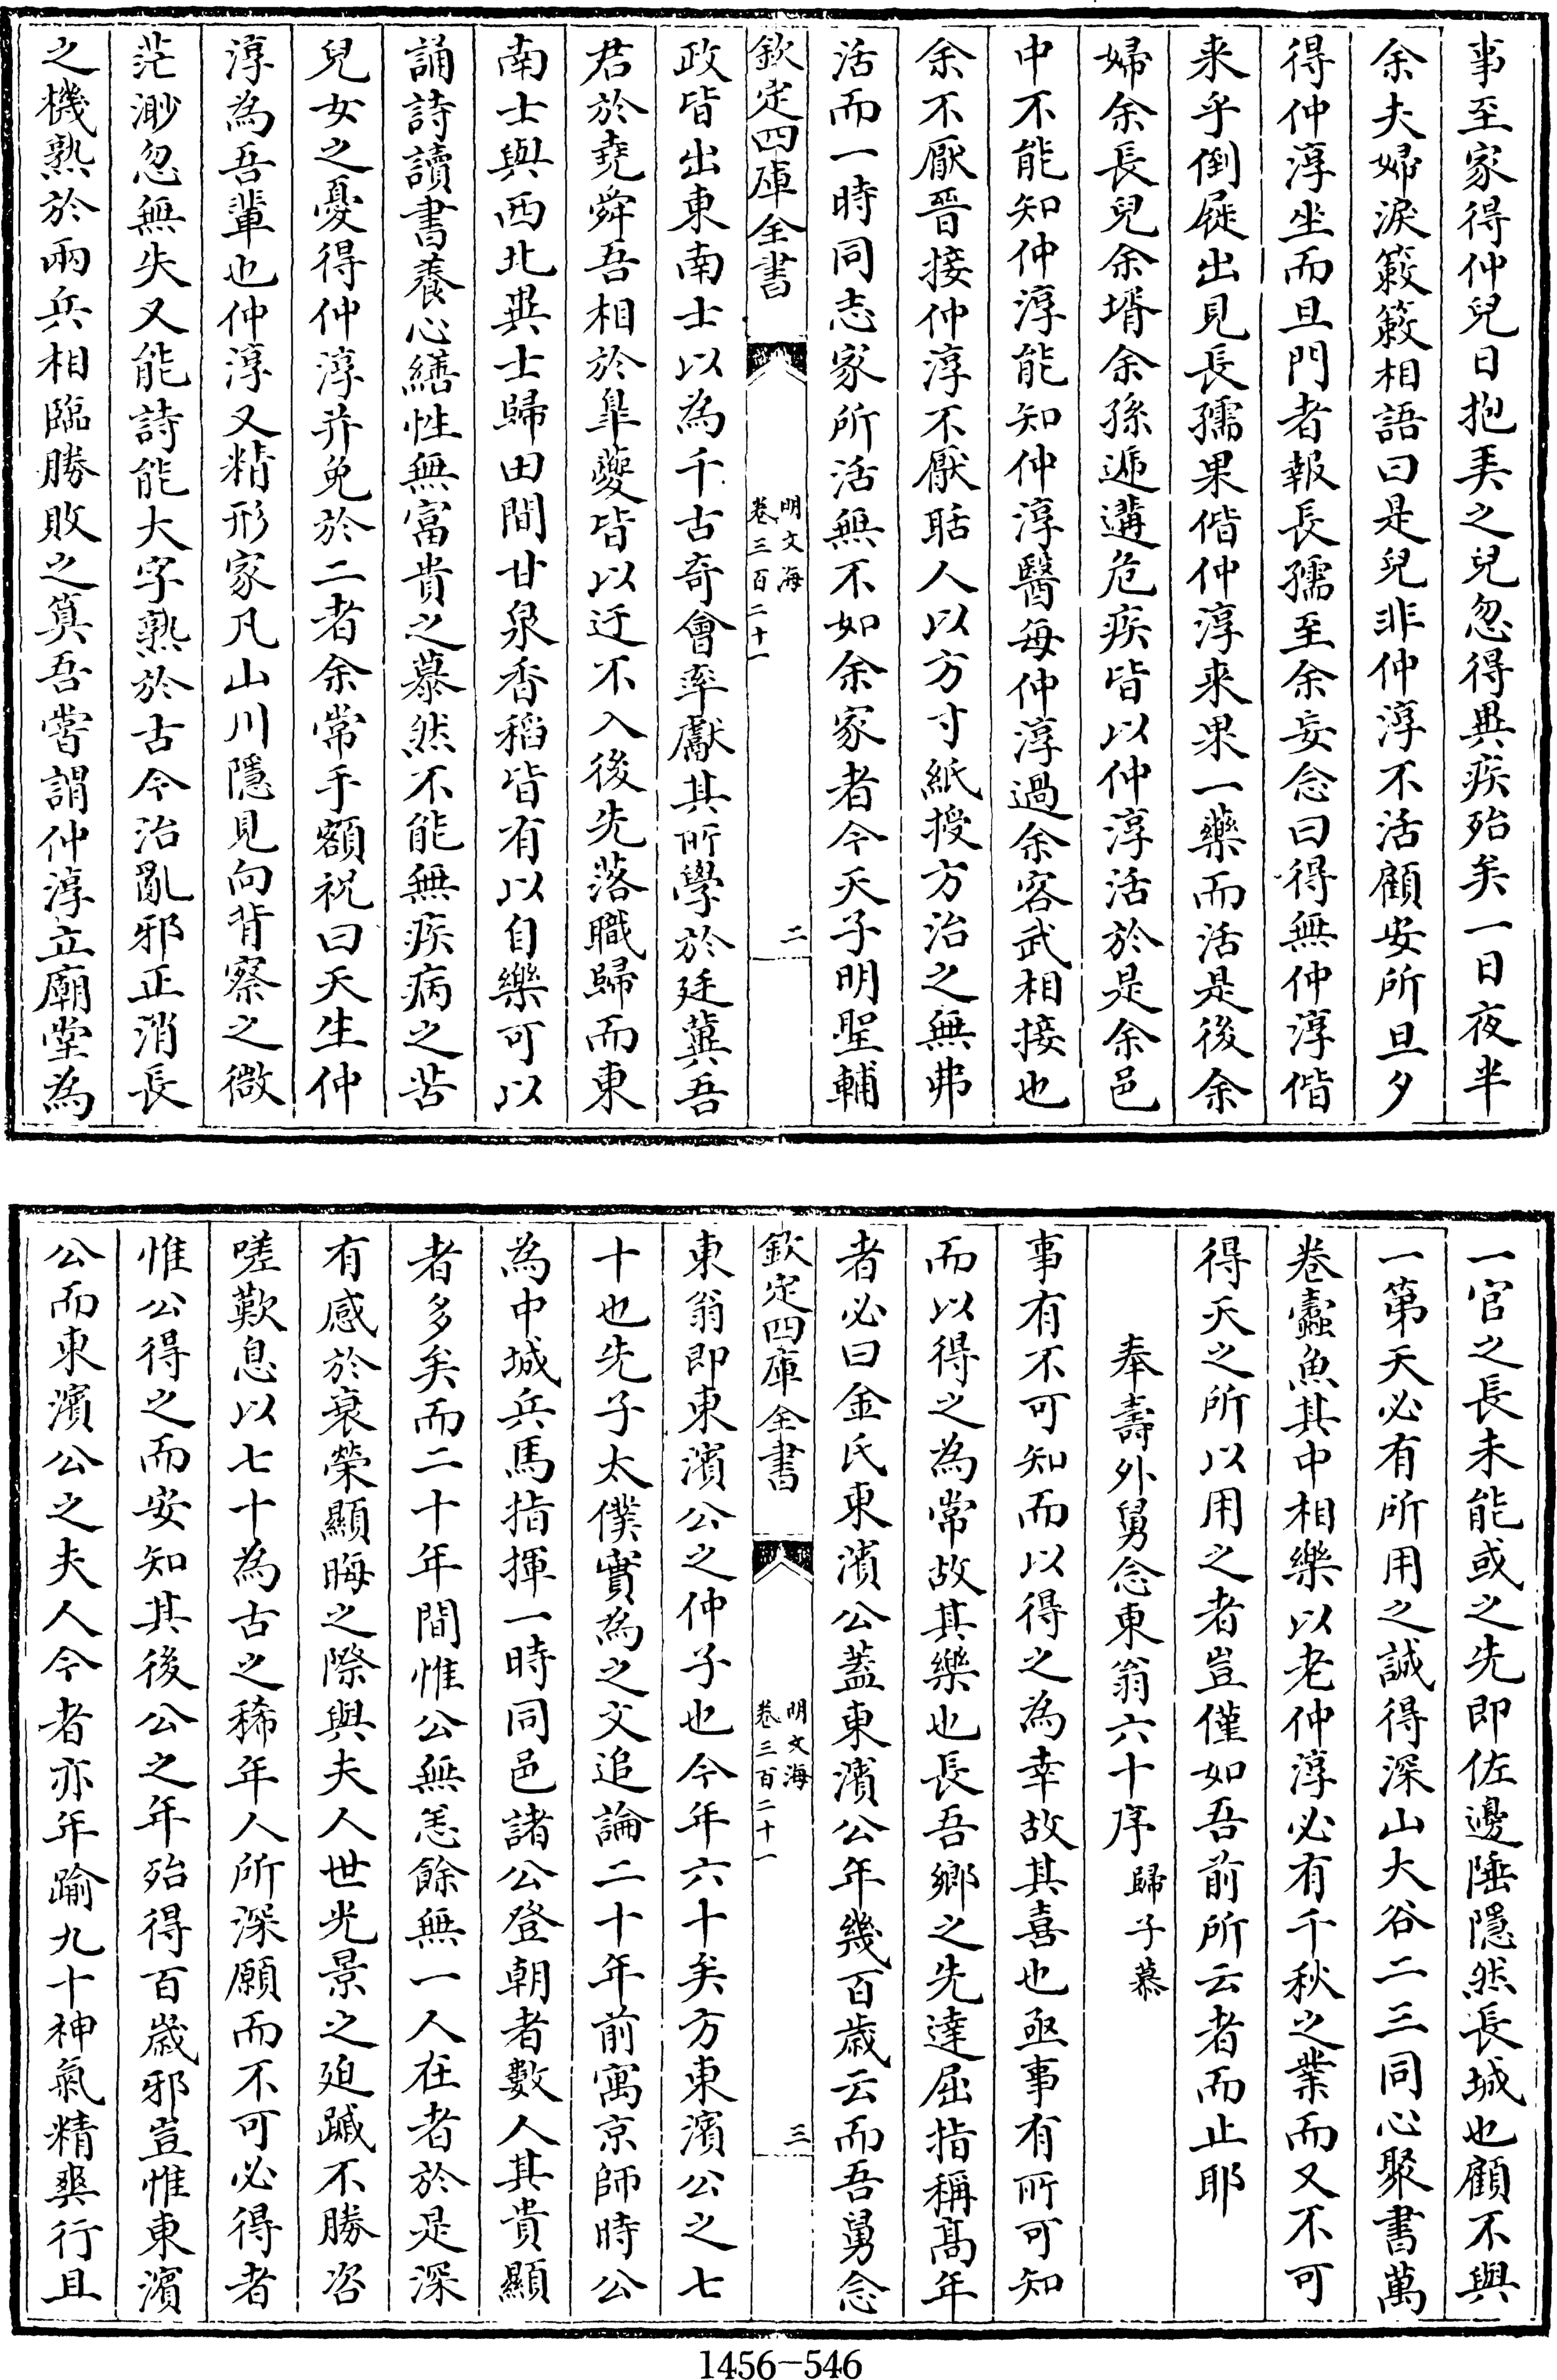 事至家得仲兒日抱弄之兒忽得異疾殆矣一日夜半
余夫婦淚簌簌相語曰是兒非仲淳不活顧安所旦夕
得仲淳坐而旦門者報長孺至余妄念曰得無仲淳偕
来乎倒屣出見長孺果偕仲淳来果一藥而活是後余
婦余長兒余壻余孫遞遘危疾皆以仲淳活於是余邑
中不能知仲淳能知仲淳醫每仲淳過余容武相接也
余不厭晉接仲淳不厭聒人以方寸紙授方治之無弗
活而一時同志家所活無不如余家者今天子明聖輔
欽定四庫全書
明文海
卷三百二十一
二
政皆出東南士以為千古奇會率獻其所學於廷冀吾
君於堯舜吾相於臯夔皆以迂不入後先落職歸而東
南士與西北異士歸田間甘泉香稻皆有以自樂可以
誦詩讀書養心繕性無富貴之慕然不能無疾病之苦
兒女之憂得仲淳并免於二者余常手額祝曰天生仲
淳為吾輩也仲淳又精形家凡山川隱見向背察之微
茫渺忽無失又能詩能大字熟於古今治亂邪正消長
之機熟於兩兵相臨勝敗之筭吾嘗謂仲淳立廟堂為
一官之長未能或之先即佐邊陲隱然長城也顧不與
一第天必有所用之誠得深山大谷二三同心聚書萬
卷蠹魚其中相樂以老仲淳必有千秋之業而又不可
得天之所以用之者豈僅如吾前所云者而止耶
奉壽外舅念東翁六十序 歸子慕
事有不可知而以得之為幸故其喜也亟事有所可知
而以得之為常故其樂也長吾鄉之先達屈指稱髙年
者必曰金氏東濱公葢東濱公年幾百歲云而吾舅念
欽定四庫全書
明文海
卷三百二十一
三
東翁即東濱公之仲子也今年六十矣方東濱公之七
十也先子太僕實為之文追論二十年前寓京師時公
為中城兵馬指揮一時同邑諸公登朝者數人其貴顯
者多矣而二十年間惟公無恙餘無一人在者於是深
有感於衰榮顯晦之際與夫人世光景之廹蹴不勝咨
嗟歎息以七十為古之稀年人所深願而不可必得者
惟公得之而安知其後公之年殆得百歲邪豈惟東濱
公而東濱公之夫人今者亦年踰九十神氣精爽行且
1456-546